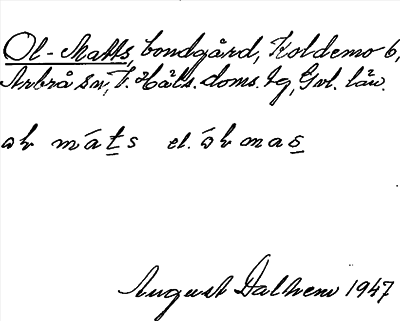 Ol-Matts, bondgård, Koldemo 6,
Arbrå sn, V. Häls. doms. tg, Gvl. län.
ɷl máts el. ɷ́l mas
August Dalhem 1947